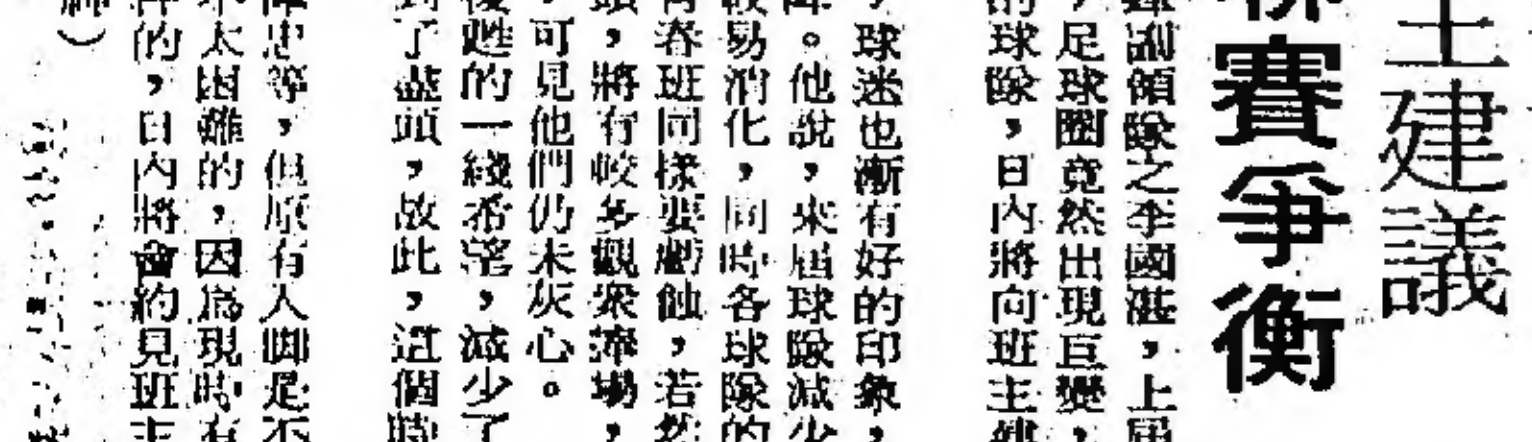 主建議
聯賽爭衡
副領隊之李國湛，上屆
，足球圈竟然出現巨變，
的球隊，日內將向班主建
，球迷也漸有好的印象，
。他說，來屆球隊減少
較易消化，同時各球隊的
青春班同樣要虧蝕，若然
頭，將有較多觀衆捧場，
，可見他們仍未灰心。
後甦的一綫希望，減少了
到了盡頭，故此，這個時
忠等，但原有人脚是不
不太困難的，因爲現時有
件的，日內將會約見班主
）